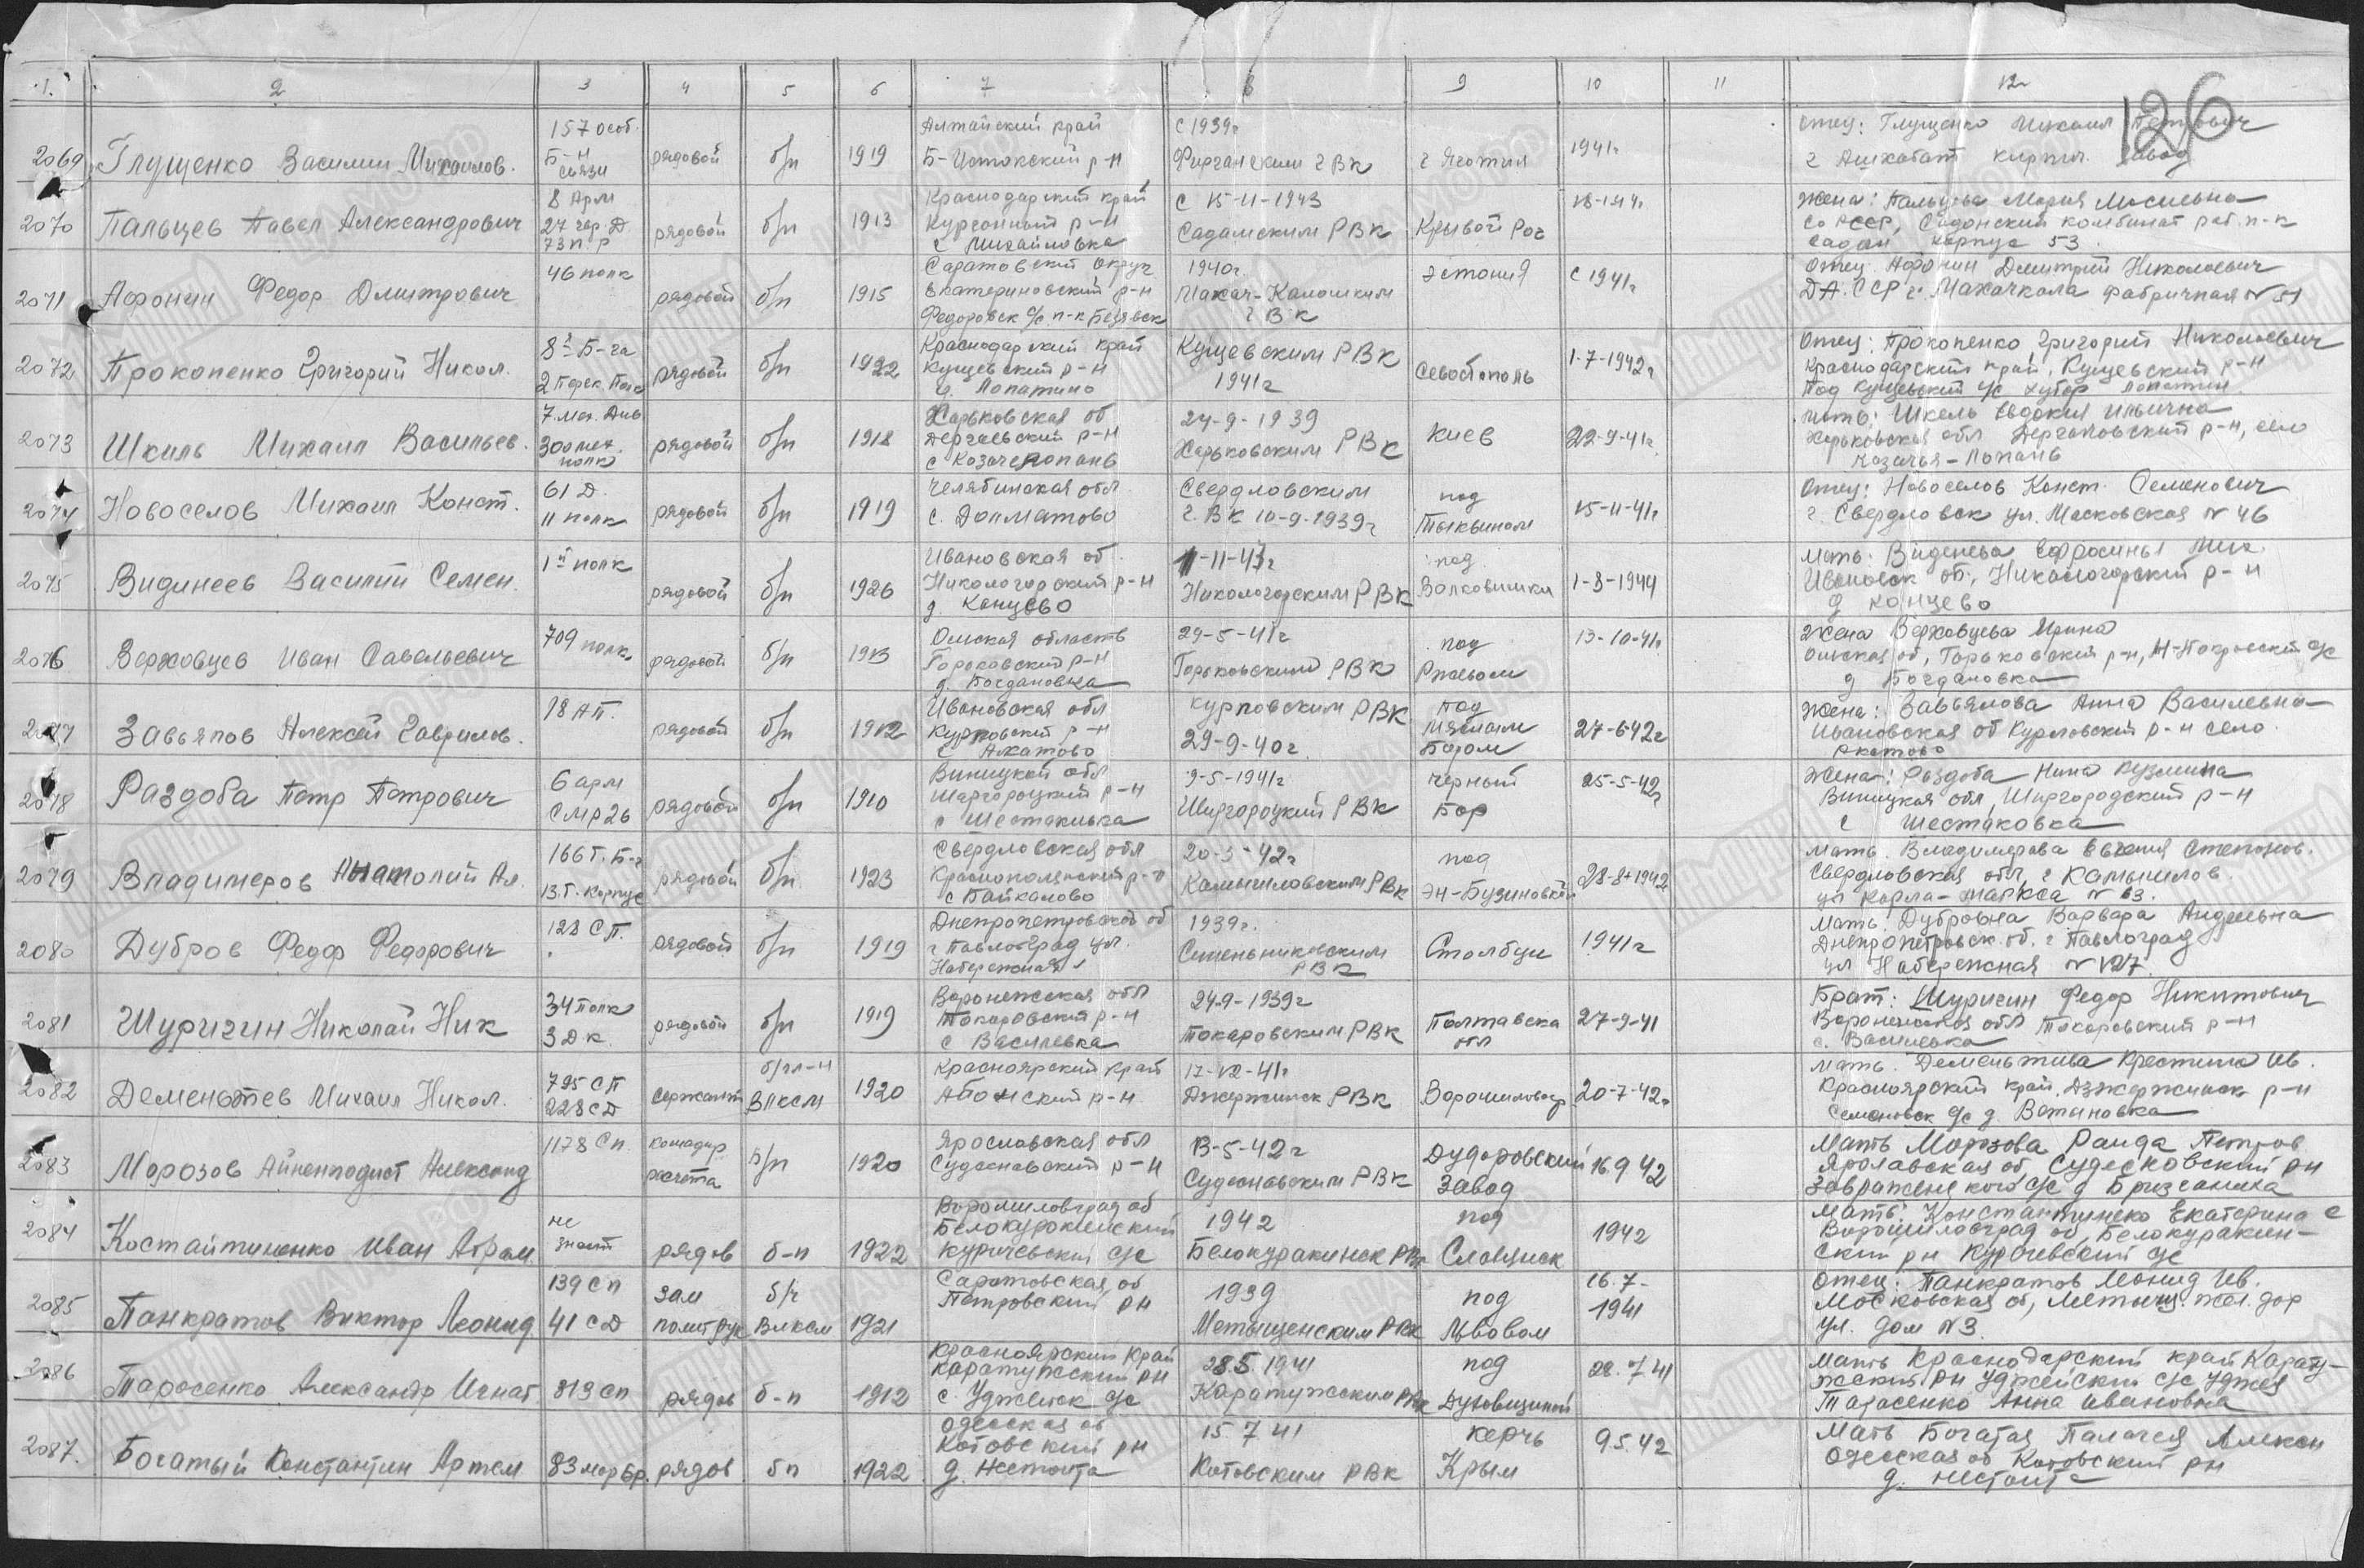 1. 2 3 4 5 6 7 8 9 10 11 12
126
2069 Глущенко Василий Михайлов. 157 особ. Б-н связи рядовой б/п 1919 Алтайский край Б-Истокский р-н с 1939г Ферганским гВк г Яготин 1941г отец: Глущенко Михаил Петрович г Ашхабат кирпич. завод
2070 Пальцев Павел Александрович 8 Арм 27 гвр. Д 73 п.р рядовой б/п 1913 Краснодарский край Курганный р-н с Михайловка с 15-11-1943 Садамским РВк Кривой Рог 18-1-44г. Жена: Пальцева Мария Моисеевна Со АССР, Садонский комбинат раб. п-к Садан корпус 53.
2071 Афонин Федор Дмитрович 46 полк рядовой б/п 1915 Саратовский округ Екатериновский р-н Федоровск с/с п-к Безявск 1940г. Махач-Калашким гВк Эстония с 1941г Отец Афонин Дмитрий Николаевич ДА.ССР г. Махачкала Фабричная № 51
2072 Прокопенко Григорий Никол. 8я Б-га 2 Перек. Полк рядовой б/п 1922 Краснодарский край Кущевский р-н д. Лопатино Кущевским РВк 1941г Севостополь 1-7-1942г Отец: Прокопенко Григорий Николаевич Краснодарский край, Кущевский р-н Под Кущевский с/с хутор Лопатин
2073 Шкиль Михаил Васильев. 7 мех. Див 300 мех. полк рядовой б/п 1918 Харьковская об Дергаевский р-н с Козачелопань 24-9-1939 Харьковским РВк Киев 22-9-41г. мать: Шкель Евдокия Ильична Харьковская обл Дергаковский р-н, село Казачья-Лопань
2074 Новоселов Михаил Конст. 61 Д. 11 полк рядовой б/п 1919 Челябинская обл. с. Долматово Свердловским г.Вк 10-9-1939г под Тыквином 15-11-41г Отец: Новоселов Конст. Семенович г. Свердловск ул. Московская № 46
2075 Видинеев Василий Семен. 1й полк рядовой б/п 1926 Ивановская об. Никологорский р-н д. Концево 1-11-43г Никологорским РВк под Волковишки 1-8-1944 мать: Виденева Ефросинья Мих. Ивановск об., Никологорский р-н д Концево
2076 Верховцев Иван Савельевич 709 полк рядовой б/п 1913 Омская область Гороковский р-н д. Богдановка 29-5-41г Горьковским РВк под Ржевом 13-10-41г. Жена Верховцева Ирина Омская об, Горьковский р-н, Н-Покровский с/с д Богдановка
2077 Завьялов Алексей Гаврилов. 18 АП. рядовой б/п 1912 Ивановская обл Курловский р-н с Акатово Курловским РВК 29-9-40г. под Мяслым Бором 27-6-42г Жена: Завьялова Анна Василевна Ивановская об Курловский р-н село Акатово
2078 Раздоба Петр Петрович 6 арм СМР26 рядовой б/п 1910 Виницкой обл Шаргороцкий р-н с Шестакивка 9-5-1941г Ширгороцкий РВк Черный Бор 25-5-42г Жена: Раздоба Нина Кузминна Виницкая обл, Ширгородский р-н с Шестаковка
2079 Владимеров Анатолий Ал. 166 Т. Б-г 13.Т. Корпус рядовой б/п 1923 Свердловская обл Краснополянский р-н с Байкалово 20-3-42г Камышловским РВк под Эн-Бузиновкой 28-8-1942 мать. Владимерова Евгения Степанов. Свердловская обл, г Камышлов. ул Карла-Маркса № 63.
2080 Дубров Федор Федорович 128 СП. рядовой б/п 1919 Днепропетровской об г Павлоград ул. Набережная 1939г. Синельниковским РВК Столбцы 1941г Мать. Дубровна Варвара Андреевна Днепропетровск. об. г Павлоград ул Набережная № 127.
2081 Шуригин Николай Ник 34 полк 3 Дк. рядовой б/п 1919 Воронежская обл Токаровский р-н с Василевка 24-9-1939г Токаровским РВК Полтавска обл 27-9-41 Брат: Шуригин Федор Никитович Воронежская обл Токаровский р-н с. Василевка
2082 Дементьев Михаил Никол. 795 СП 228 СД сержант б/чл-н ВЛКСМ 1920 Красноярский край Абанский р-н 17-12-41г Джержинск РВк Ворошиловгр 20-7-42г Мать. Дементьива Крестина Ив. Красноярский край, Дзжержинск р-н Семеновск с/с д. Вотановка
2083 Морозов Александ 1178 Сп командир расчета б/п 1920 Ярославская обл Судеславский р-н 13-5-42г Судеславским РВк Дудоровский Завод 16 9 42 Мать Морозова Раида Петров Ярославская об, Судесковский рн
2084 Костайтиненко Иван Абрам. не знает рядов б-п 1922 Ворошиловград об Белокурокинский Курячевский с/с 1942 Белокуракинск РВк под Славянск 1942 Мать Константиненко Екатерина С Ворошиловград об, Белокуракинский рн Курачевский с/с
2085 Панкратов Виктор Леонид. 139 СП 41 СД зам политрук б/ч Влксм 1921 Саратовская об Петровский рн 1939 Метыщенским РВк под Львовом 16.7-1941 Отец: Панкратов Леонид Ив. Московская об, Метыщ. жел. дор ул. дом №3.
2086 Тарасенко Александр Игнат 813 сп рядов б-п 1912 Красноярский Край Каратузский рн с. Уджеиск с/с 28.5.1941 Каратузским РВк под Духовщиной 28.7 41 Мать Краснодарский край Каратузский рн Уджейский с/с Уджея Тарасенко Анна Ивановна
2087. Богатый Константин Артем 83 мор бр. рядов бп 1922 Одесская об Котовский рн д. Нестоита 15 7 41 Котовским РВк Керчь Крым 9 5. 42 Мать Богатая Палагея Алексан Одесская об Котовский рн д. Нестоита